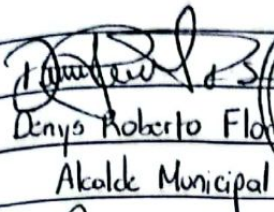 Denys Roberto Flo
Alcalde Municipal